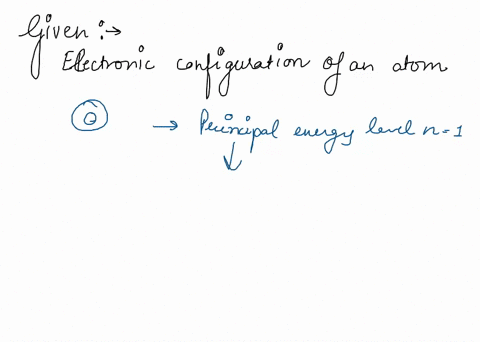 Given :→
Electronic configuration of an atom
→ Principal energy level n=1
↓